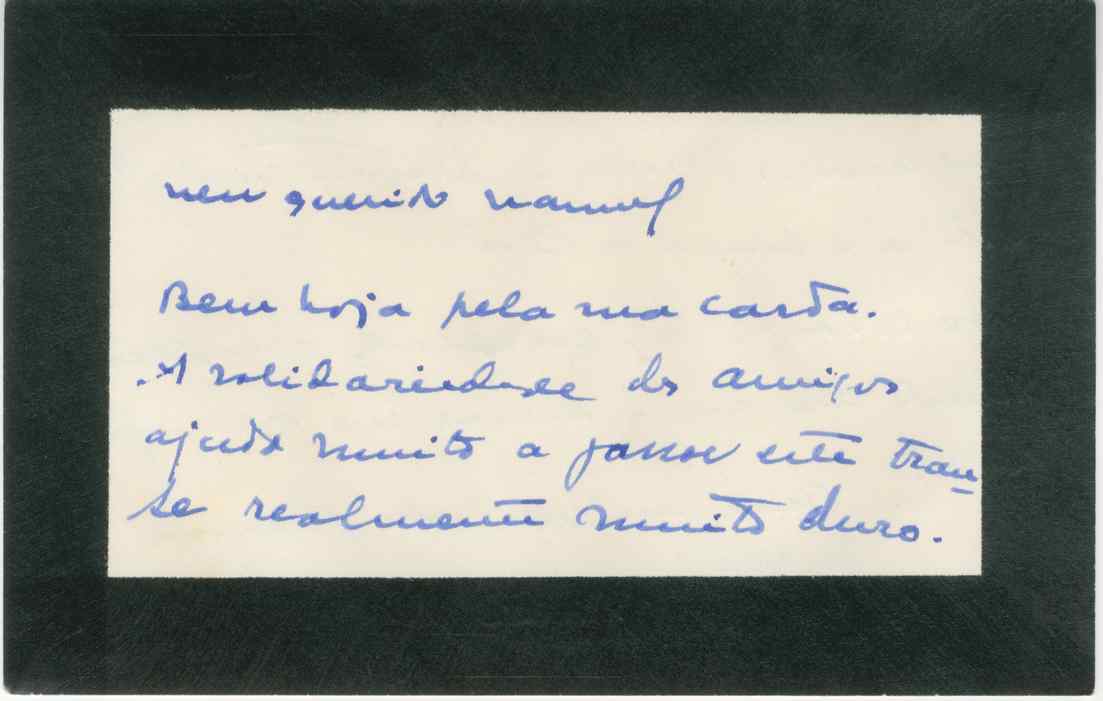 meu querido manuel
Bem haja pela sua carta.
A solidariedade dos amigos
ajuda muito a passar este tran-
se realmente muito duro.